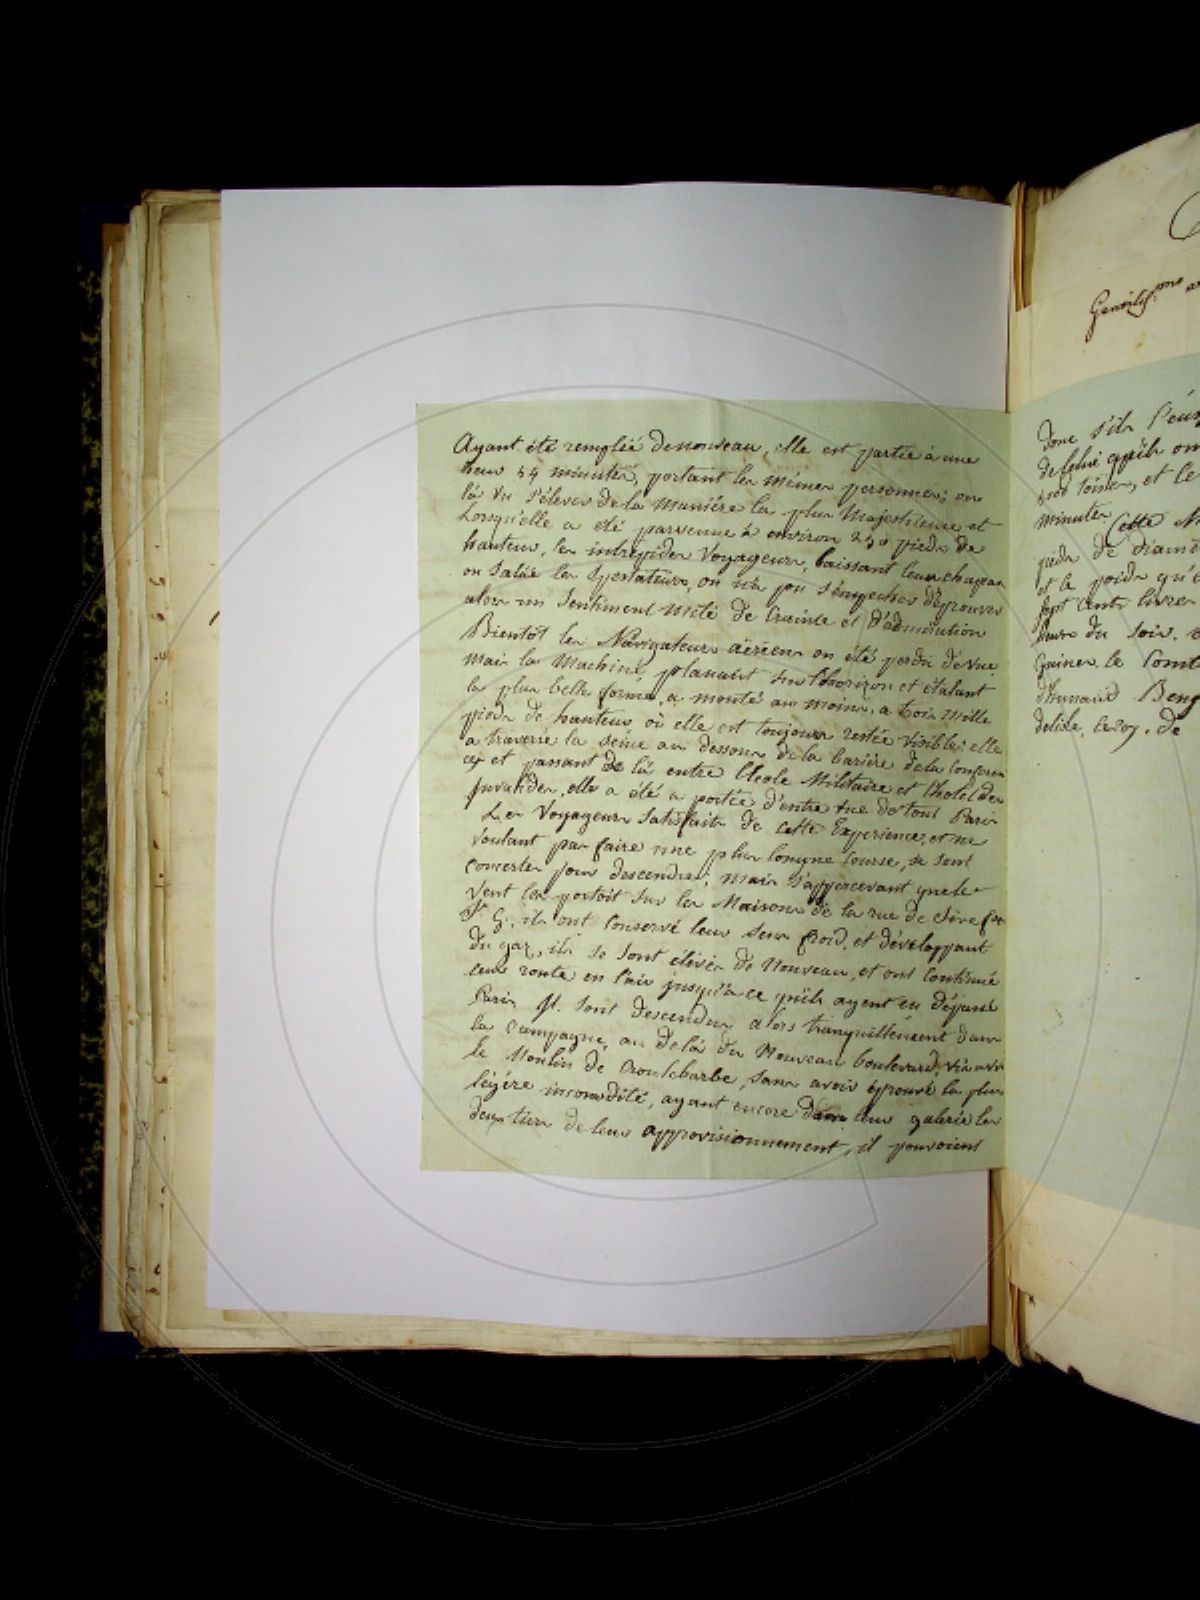 Ayant été remplié denouveau, elle est partie à une
heur 54 minutes, portant les mêmes personnes; on
lá vu s'élever de la maniére la plus Majestueuse et
Lorsqu'elle a été parvenue à environ 250 pieds de
hauteur, les intrepides Voyageurs, baissant leur chapeau
on Salüé les Spectateurs, on n'a pu s'émpecher d'éprouver
alors un Sentiment melé de Crainte et d'admiration
Bientôt les Navigateurs äériens on été perdu de vue
mais la Machine, planant sur l'horizon et étalant
la plus belle forme, a monté au moins, a trois mille
pieds de hauteur où elle est toujours restée visible: elle
a traversé la seine au dessous de la bariére de la Conferen
ce, et passant de lá entre l'école Militaire et l'hotel des
Invalides, elle a été a portée d'entre vue de tout Paris
Les Voyageurs Satisfaits de cette Experience, et ne
voulant pas faire une plus longue Course, se sont
concertés pour descendre; mais s'appercevant que le
Vent les portoit sur les Maisons de la rue de Séve f.
St. G. ils ont Conservé leur Sens froid, et développant
du gaz, ils se sont élévés de Nouveau, et ont Continué
leur route en l'air jusqu'à ce qu'ils ayent eu dépassé
Paris. Il. sont descendus alors tranquillément dans
la Campagne, au delá du Nouveau boulevard, vis a vis
le Moulin de Croulebarbe, sans avoir éprouvé la plus
légére incomodité, ayant encore dans leur galerie les
deux tiers de leur approvisionnement, il pouvoient
Gentils.mo
donc s'ils
de celui qu'ils on
500 toises, et le
minutes
Cette
pieds de diam
et le poids qu'
sept cents livres
heure du soir.
Guines. le Comte
d'hunaud
delisle, leroy. de